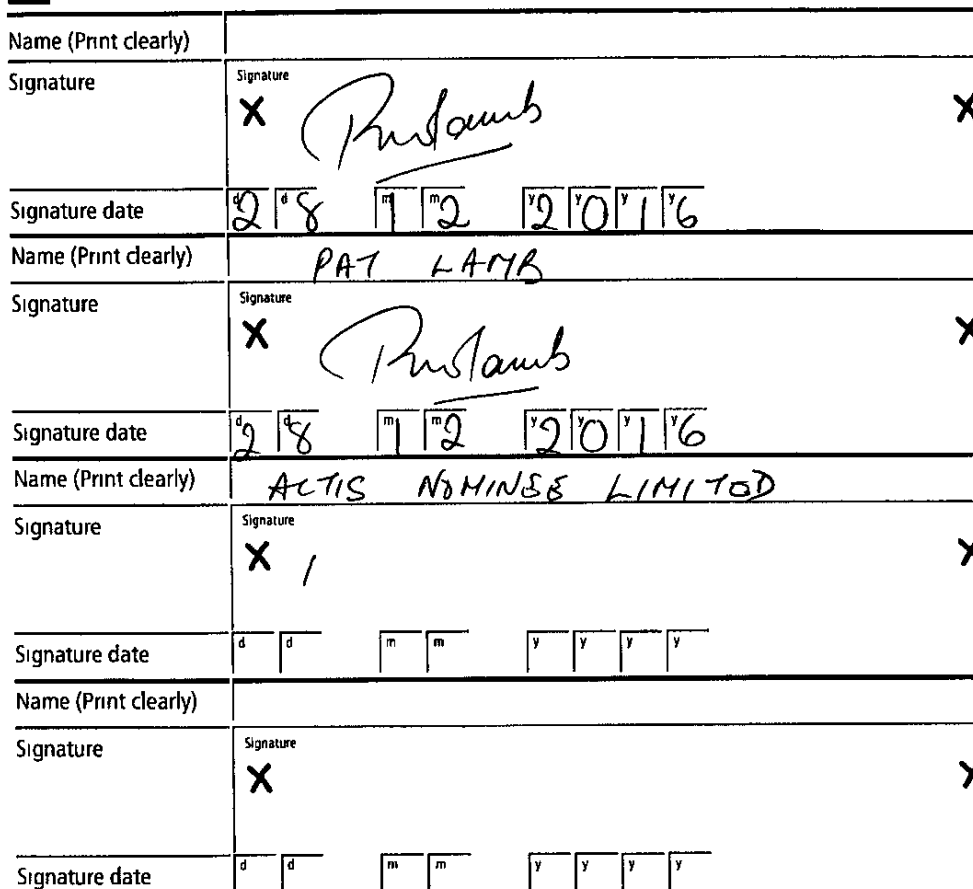 Name (Print clearly)
Signature
Signature
X X
Signature date d2 d8 m1 m2 y2 y0 y1 y6
Name (Print clearly) PAT LAMB
Signature
Signature
X X
Signature date d2 d8 m1 m2 y2 y0 y1 y6
Name (Print clearly) ACTIS NOMINEE LIMITED
Signature
Signature
X / X
Signature date d d m m y y y y
Name (Print clearly)
Signature
Signature
X X
Signature date d d m m y y y y